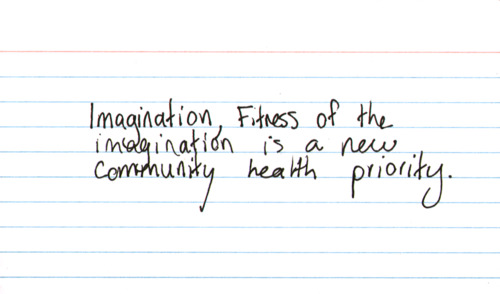 Imagination, Fitness of the
imagination is a new
community health priority.